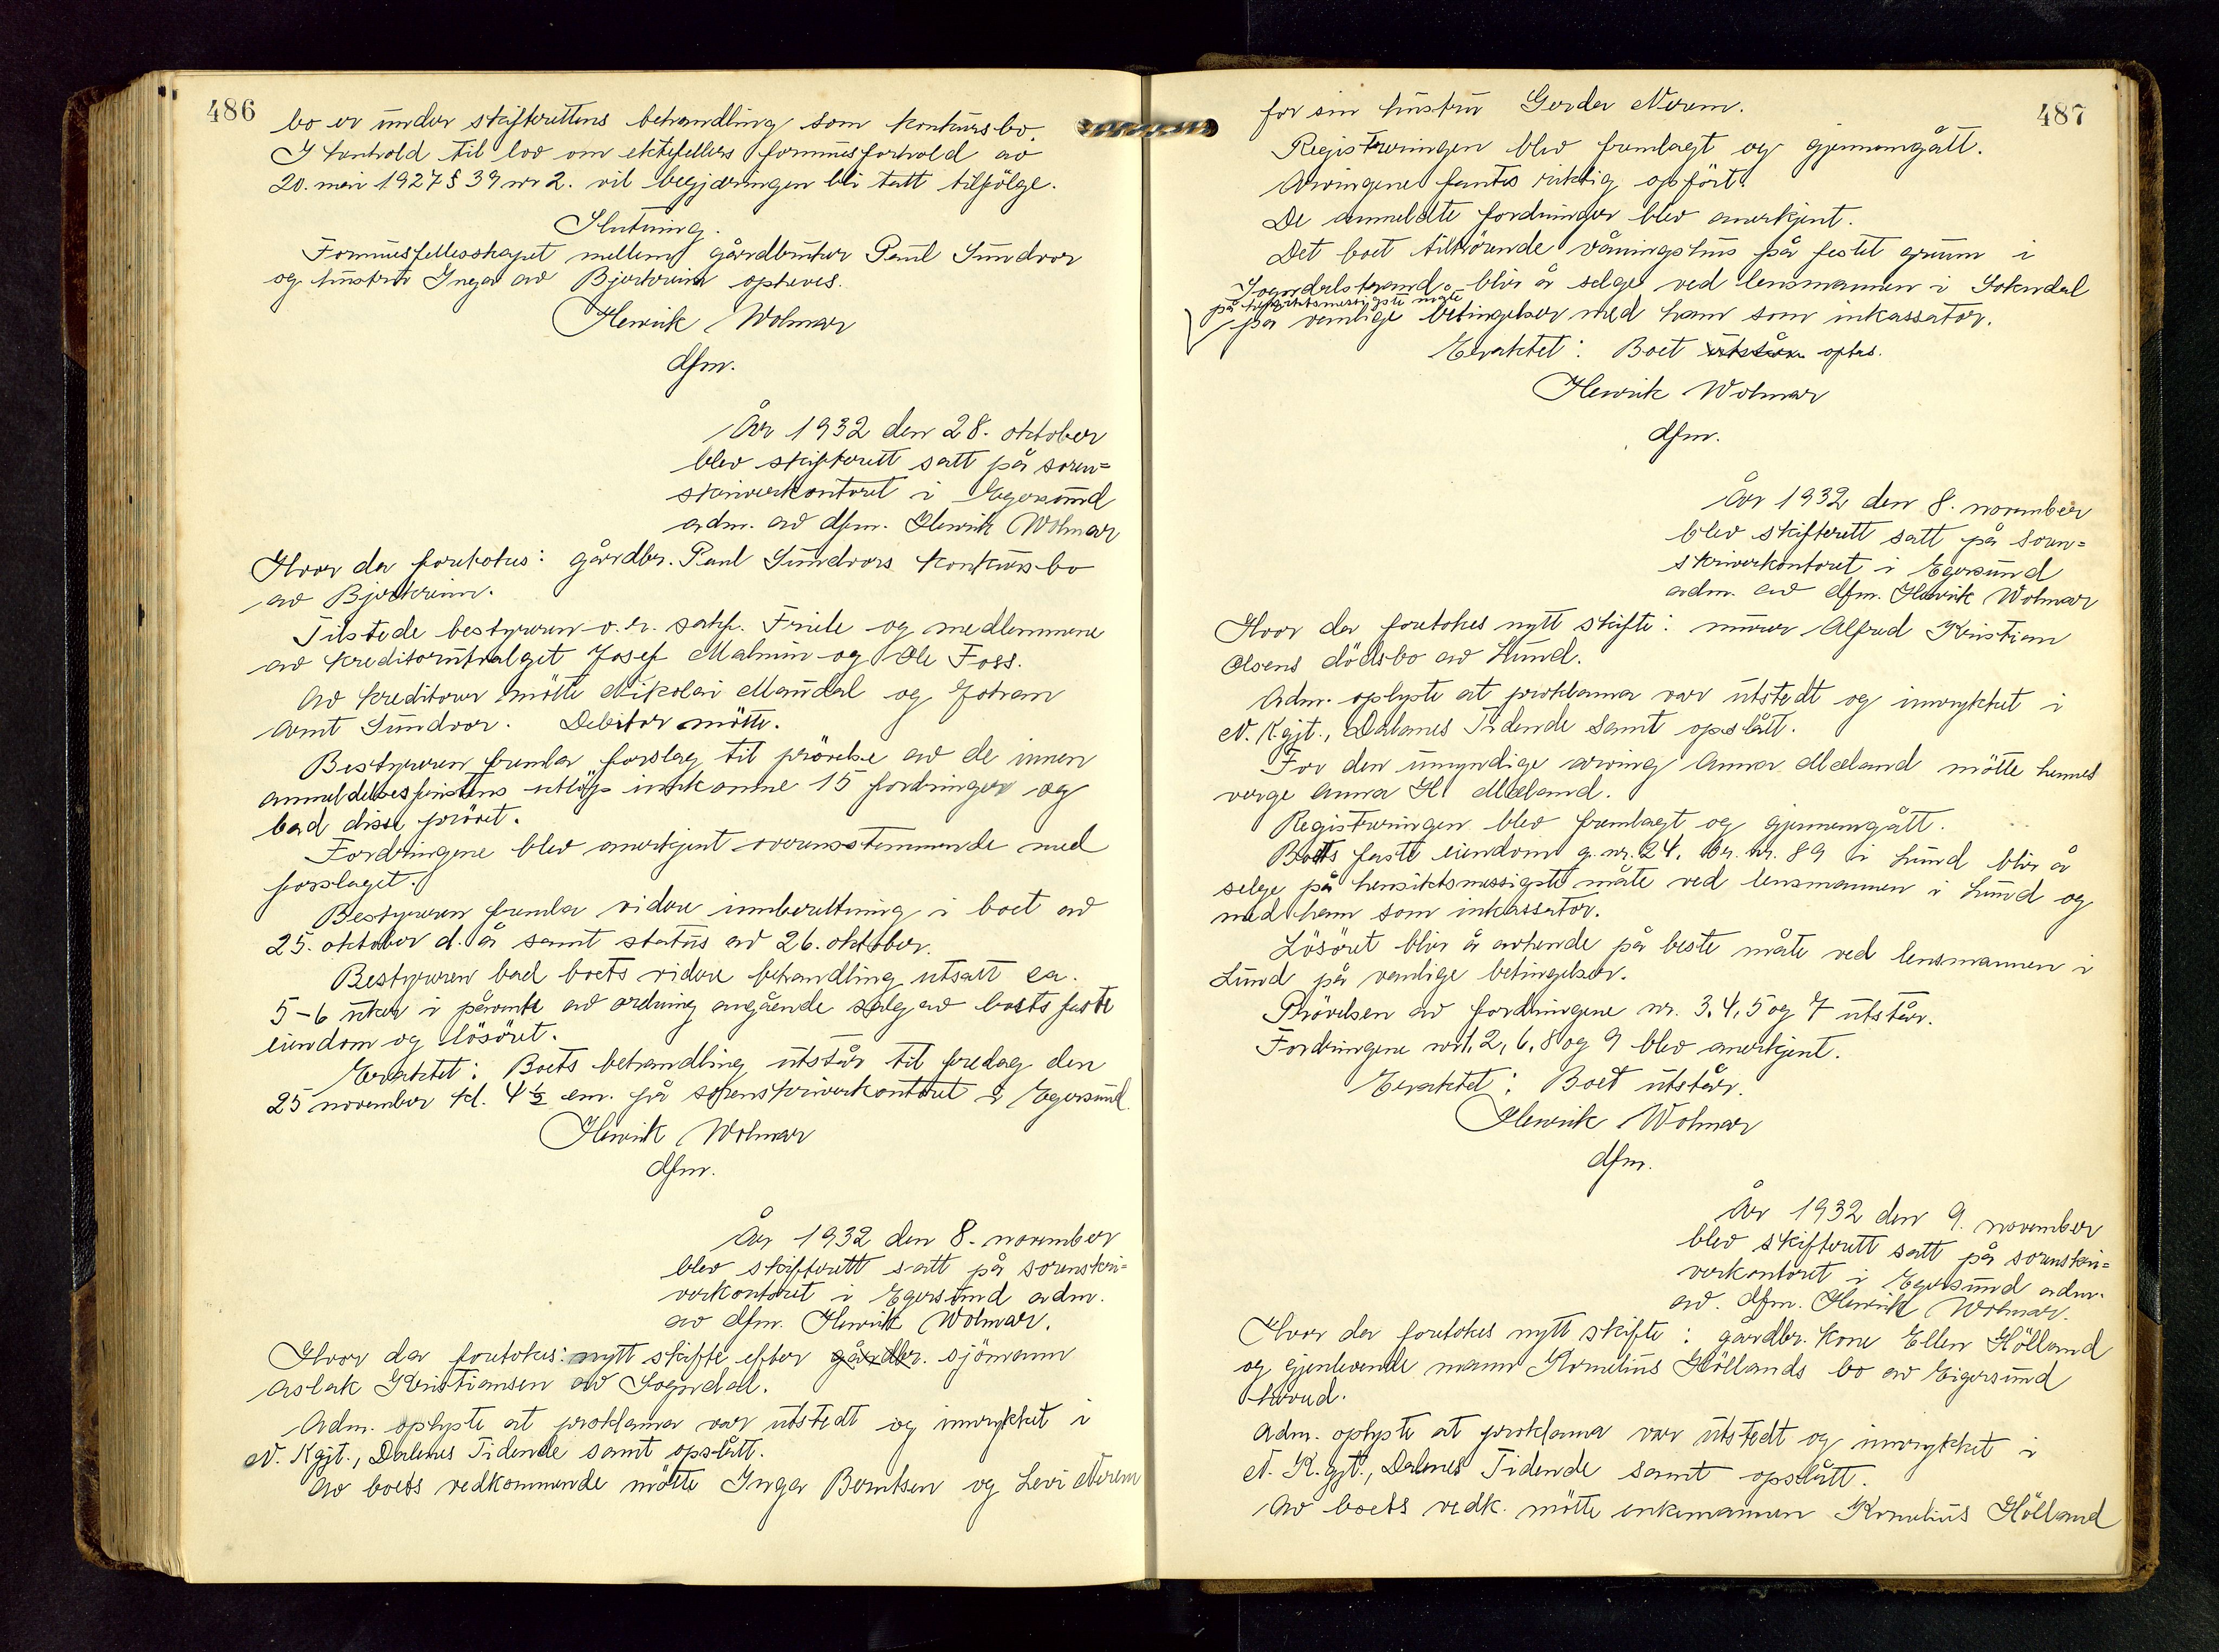 486
bo er under skifterettens behandling som konkursbo.
I henhold til lov om ektefellers formuesforhold av
20. mai 1927 § 39 nr 2. vil begjæringen bli tatt tilfölge.
Slutning.
Formuesfellesskapet mellem gårdbruker Paul Sundvor
og hustru Inga av Bjerkreim opheves.
Henrik Wolmar
dfm.
År 1932 den 28. oktober
blev skifterett satt på soren=
skriverkontoret i Egersund
adm. av dfm. Henrik Wolmar
Hvor da foretokes: gårdbr. Paul Sundvors konkursbo
av Bjerkreim.
Tilstede bestyreren o.r. sakf. Friele og medlemmene
av kreditorutvalget Josef Malmin og Ole Foss.
Av kreditorer mötte Nikolai Maudal og Johan
Arnt Sundvor. Debitor mötte.
Bestyreren fremla forslag til prövelse av de innen
anmeldelsesfristens utlöp innkomne 15 fordringer og
bad disse prövet.
Fordringene blev anerkjent overensstemmende med
forslaget.
Bestyreren fremla videre innberetning i boet av
25. oktober d. å samt status av 26. oktober.
Bestyreren bad boets videre behandling utsatt ca.
5-6 uker i påvente av ordning angående salg av boets faste
eiendom og lösöret.
Eraktet: Boets behandling utstår til fredag den
25 november kl. 4½ em. på sorenskriverkontoret i Egersund.
Henrik Wolmar
dfm.
År 1932 den 8. november
blev skifterett satt på sorenskri=
verkontoret i Egersund adm.
av dfm. Henrik Wolmar.
Hvor da foretokes: nytt skifte efter gårdbr. sjömann
Aslak Kristiansen av Sogndal.
Adm. oplyste at proklama var utstedt og innrykket i
N. Kgjt., Dalenes Tidende samt opslått.
Av boets vedkommende mötte Inga Berntsen og Levi Nerem
487
for sin hustru Gerda Nerem.
Registreringen blev fremlagt og gjennemgått.
Arvingene fantes riktig opfört.
De anmeldte fordringer blev anerkjent.
Det boet tilhörende våningshus på festet grunn i
Sogndalstrand blir å selge ved lensmannen i Sokndal
på hensiktsmessigste måte
på vanlige betingelser med ham som inkassator.
Eraktet: Boet utstår optas.
Henrik Wolmar
dfm.
År 1932 den 8. november
blev skifterett satt på soren=
skriverkontoret i Egersund
adm. av dfm. Henrik Wolmar
Hvor da foretokes nytt skifte: murer Alfred Kristian
Olsens dödsbo av Lund.
Adm. oplyste at proklama var utstedt og innrykket i
N. Kgjt., Dalanes Tidende samt opslått.
For den umyndige arving Anna Mæland mötte hennes
verge Anna H. Mæland.
Registreringen blev fremlagt og gjennemgått.
Boets faste eiendom g. nr. 24, br. nr. 89 i Lund blir å
selge på hensiktsmessigste måte ved lensmannen i Lund og
med ham som inkassator.
Lösöret blir å avhende på beste måte ved lensmannen i
Lund på vanlige betingelser.
Prövelsen av fordringene nr. 3, 4, 5 og 7 utstår.
Fordringene nr 1, 2, 6, 8 og 9 blev anerkjent.
Eraktet: Boet utstår.
Henrik Wolmar
dfm.
År 1932 den 9. november
blev skifterett satt på sorenskri=
verkontoret i Egersund adm.
av. dfm. Henrik Wolmar.
Hvor da foretokes nytt skifte: gårdbr. kone Ellen Hölland
og gjenlevende mann Kornelius Höllands bo av Eigersund
herred.
Adm. oplyste at proklama var utstedt og innrykket i
N. K.gjt., Dalenes Tidende samt opslått.
Av boets vedk. mötte enkemannen Kornelius Hölland